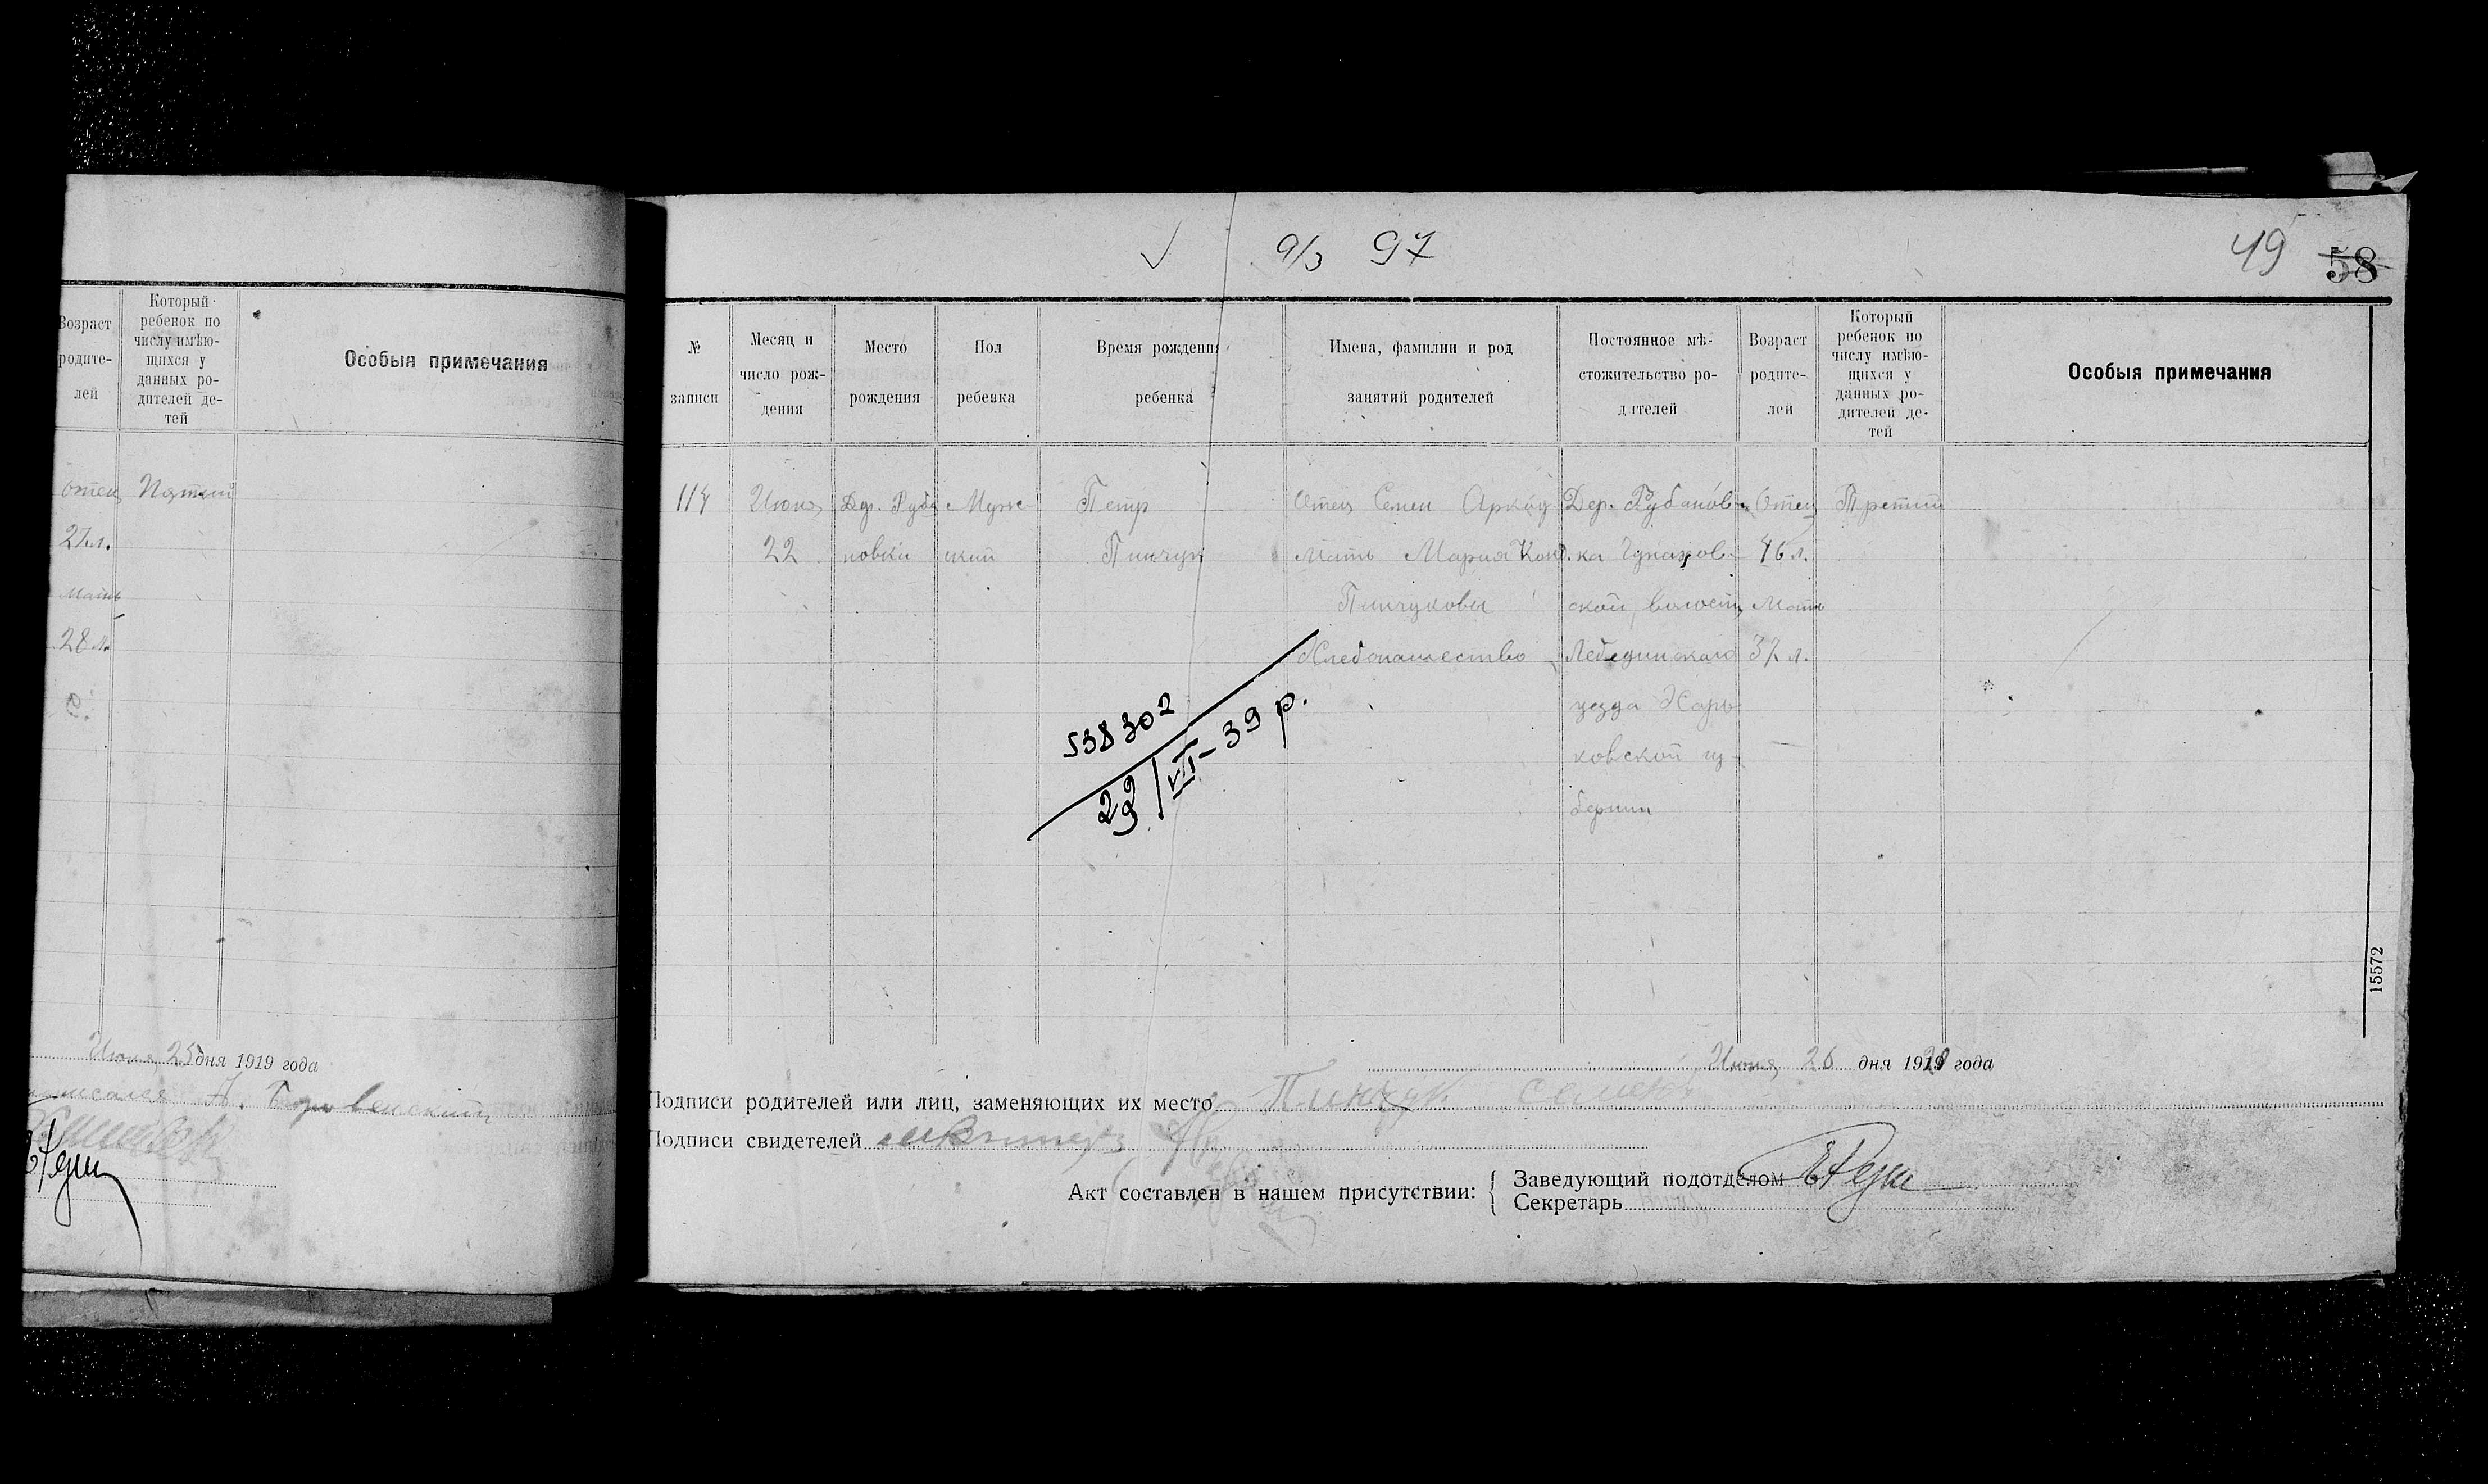 Возраст родите- лей
Который ребенок по числу имѣю- щихся у данных ро- дителей де- тей
Особыя примечания
отец Пятый
27 л.
мать
28 л.
Июня 25 дня 1919 года
9/3 97
49 58
№ записи
Месяц и число рож- дения
Место рождения
Пол ребенка
Время рождения ребенка
Имена, фамилии и род занятий родителей
Постоянное мѣ- стожительство ро- дителей
Возраст родите- лей
Который ребенок по числу имѣю- щихся у данных ро- дителей де- тей
Особыя примечания
114 Июня Дер. Руба Муже Петр Отец Семен Аркад Дер. Рубанов- Отец Третий
22 новки ский Пинчук Мать Мария Конд. ка 46 л.
Пинчуковы ской волости Мать
Хлебопашество Лебединскаго 37 л.
уезда Харь-
ковской гу-
бернии
538302
29/VII-39 р.
15572
Июня 26 дня 1919 года
Подписи родителей или лиц, заменяющих их место Пинчук Семен
Подписи свидетелей
Акт составлен в нашем присутствии: { Заведующий подотделом
Секретарь